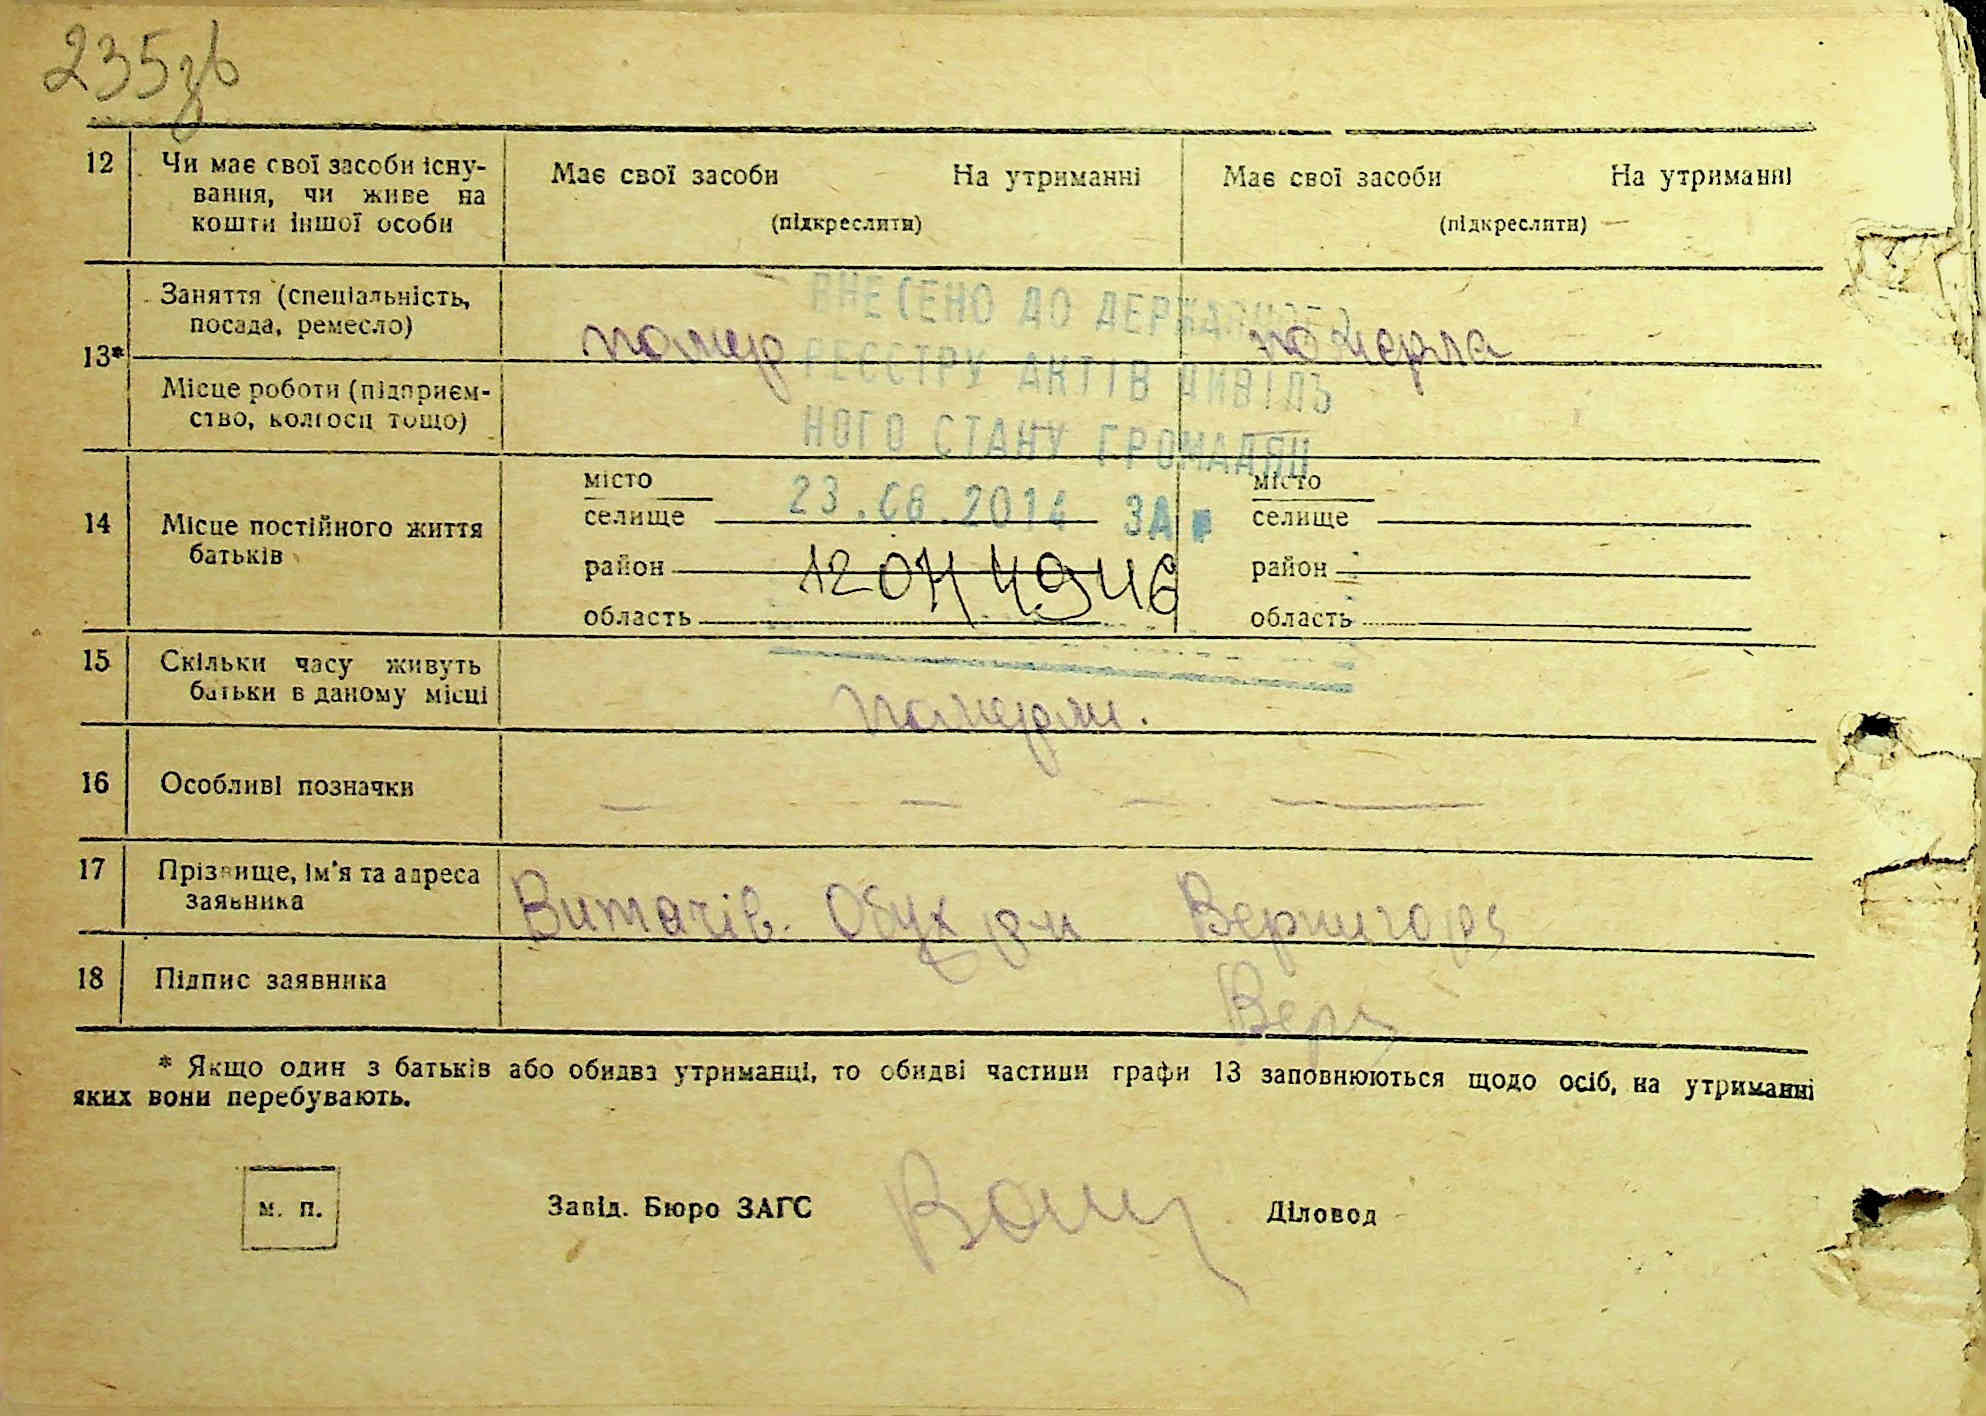 235зв
12 Чи має свої засоби існу-
вання, чи живе на
кошти іншої особи
Має свої засоби На утриманні
(підкреслити)
Має свої засоби На утриманні
(підкреслити)
13*
Заняття (спеціальність,
посада, ремесло)
помер
померла
Місце роботи (підприєм-
ство, колгосп тощо)
ВНЕСЕНО ДО ДЕРЖАВНОГО
РЕЄСТРУ АКТІВ ЦИВІЛЬ
НОГО СТАНУ ГРОМАДЯН
23.08.2014 ЗА
14 Місце постійного життя
батьків
місто
селище
район
область
місто
селище
район
область
15 Скільки часу живуть
батьки в даному місці
померли.
16 Особливі позначки
17 Прізвище, ім'я та адреса
заявника
Витачів. Обух р-н Вернигора
18 Підпис заявника
Вер
* Якщо один з батьків або обидва утриманці, то обидві частини графи 13 заповнюються щодо осіб, на утриманні
яких вони перебувають.
м. п.
Завід. Бюро ЗАГС
Діловод